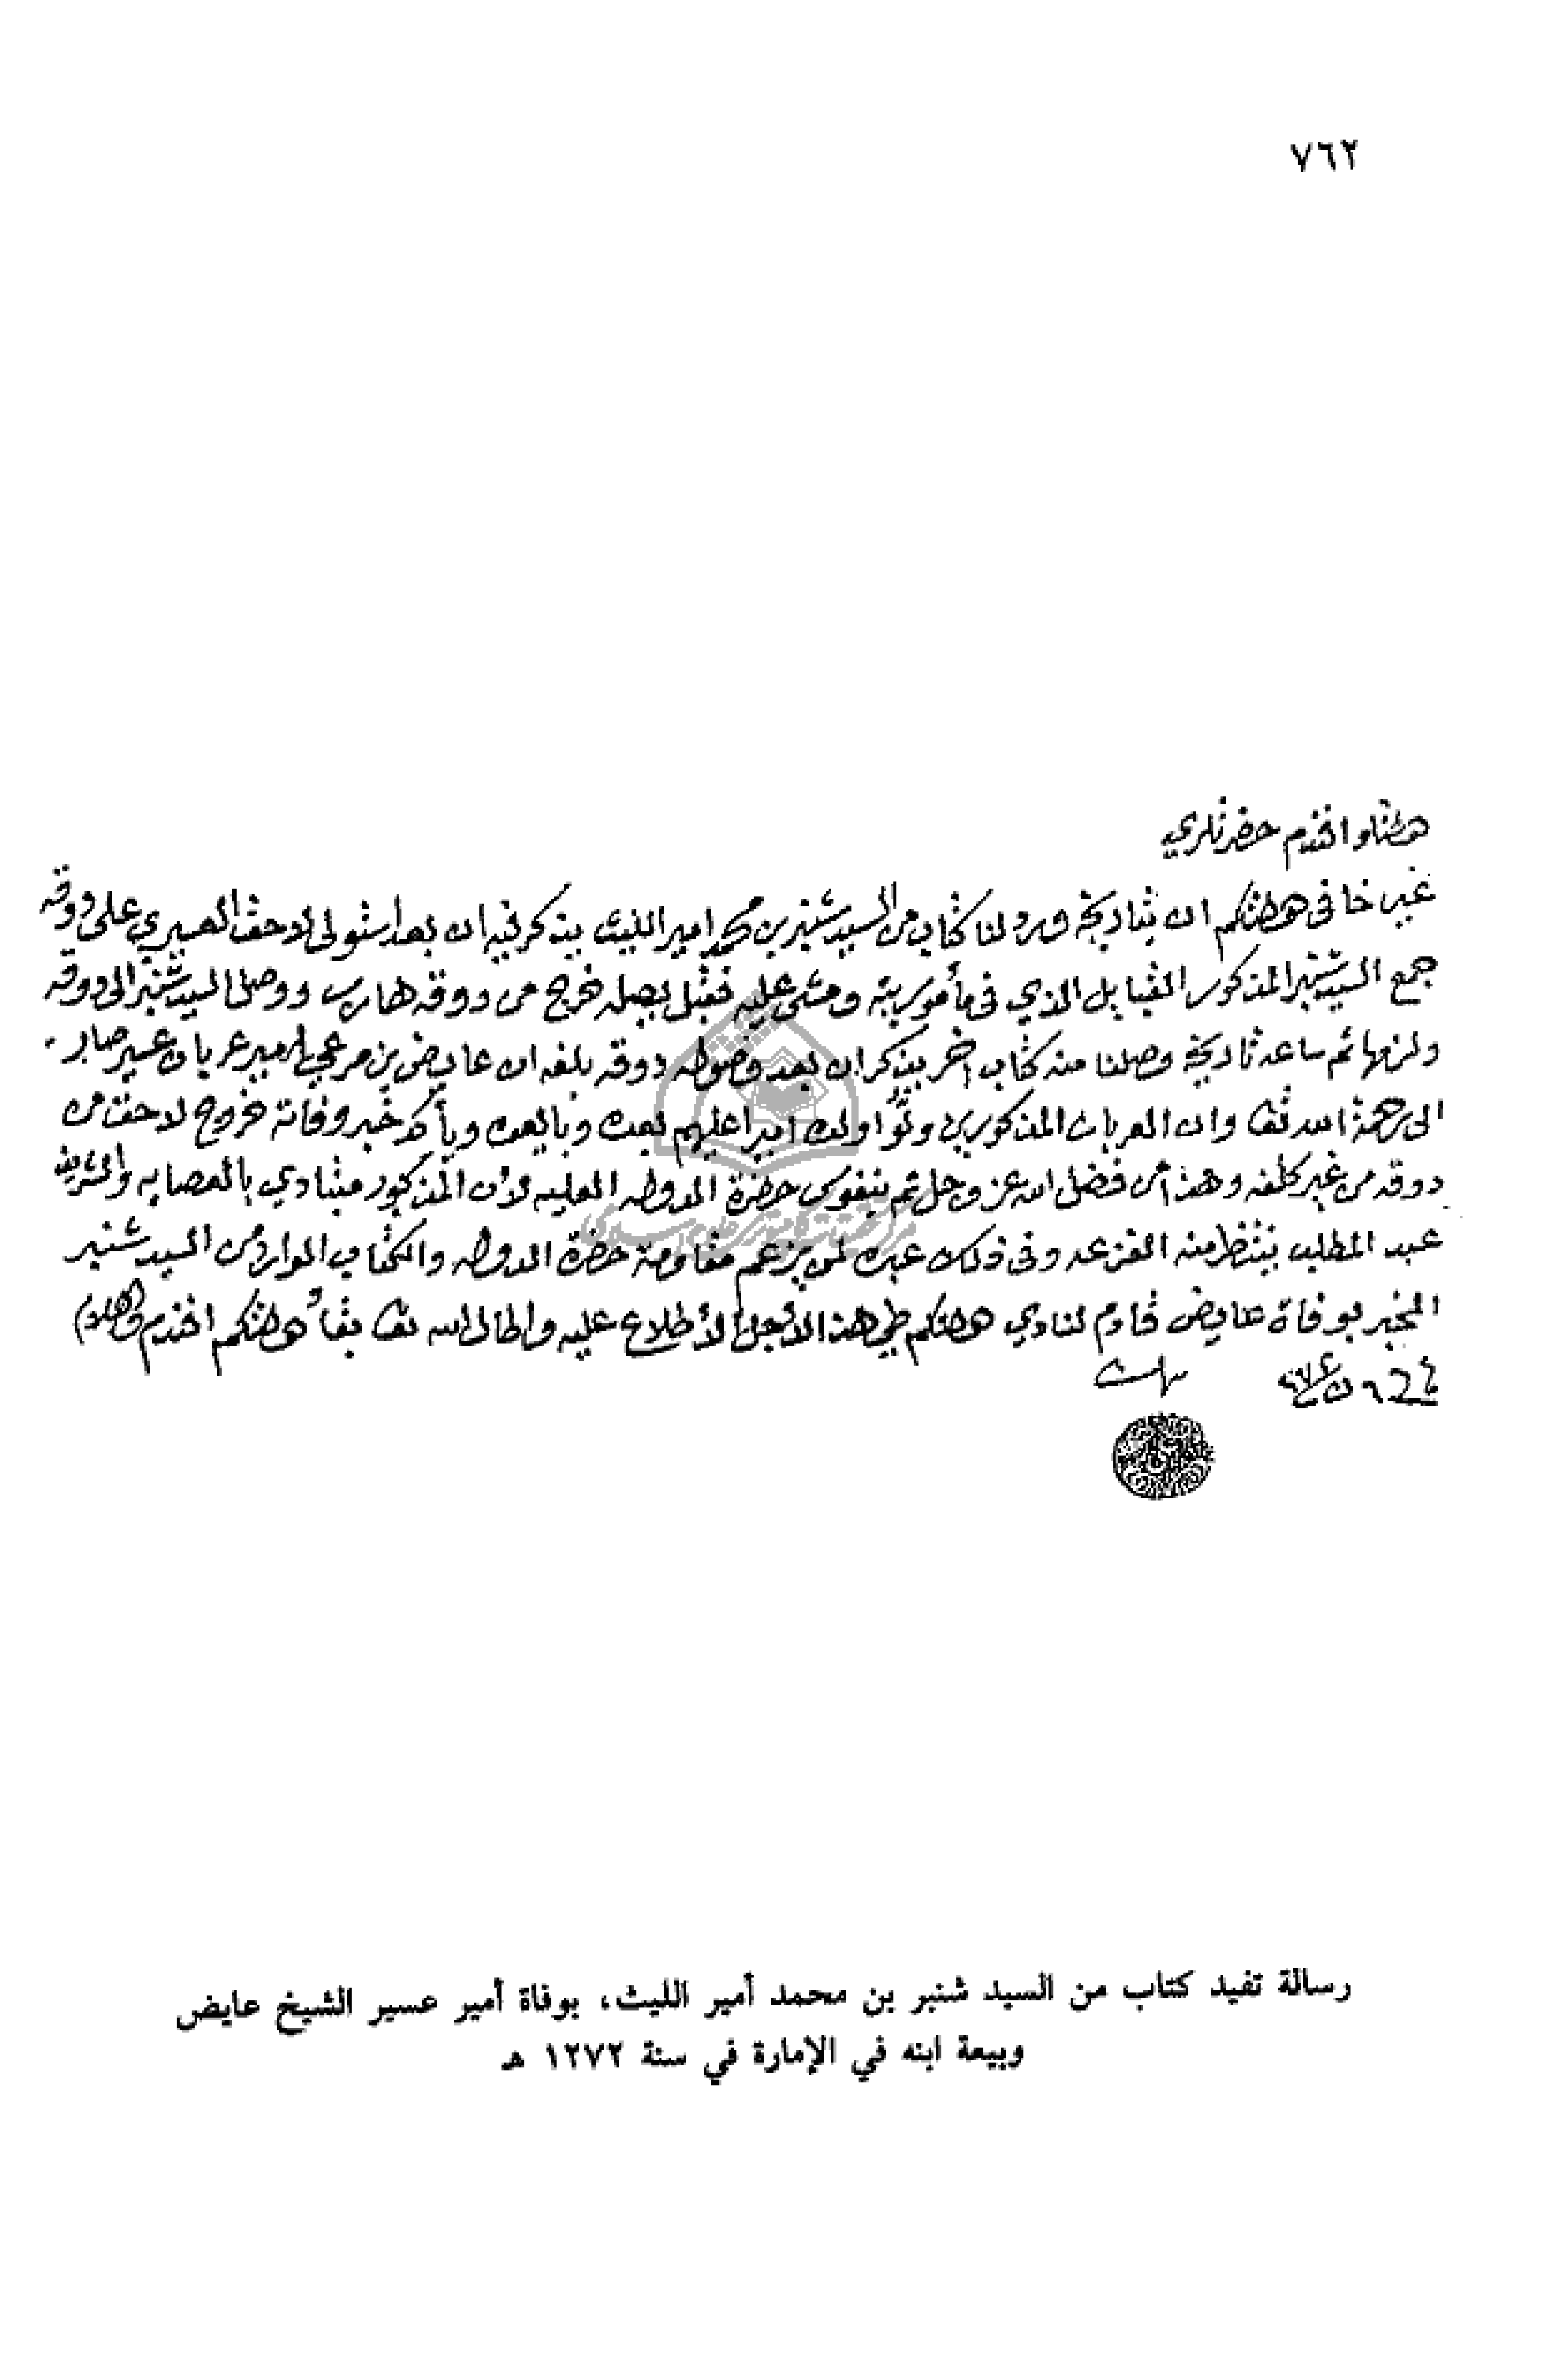 ٧٦٢
افندم حضرتلري
غير خافى همتكم ان بتاريخه ورد لنا كتاب من السيد شنبر بن محمد امير الليث يذكر فيه ان بعد استولى لاحق العسيري على دوقه
جمع السيد شنبر المذكور القبايل الذي فى مأموريته ومشى عليه فقبل يصله خرج من دوقه هارب ووصل السيد شنبر الى دوقه
ولزمها ثم ساعة تاريخه وصلنا منه كتاب اخر يذكر ان بعد وصوله دوقه بلغه ان عايض بن مرعي امير عربان عسير صار
الى رحمة الله تعا وان العربان المذكورين ولّوا ولده اميرا عليهم بعده وبايعوه وبأكد خبر وفاته خروج لاحق من
دوقه من غير كلفه وهذا من فضل الله عز وجل ثم بنفوس حضرة الدوله العليه لأن المذكور متبادي بالعصايه والشريف
عبد المطلب ينتظر منه الفزعه وفى ذلك عبره لمن يزعم مقاومة حضرة الدوله والكتاب الوارد من السيد شنبر
المخبر بوفاة عايض قادم لنادي همتكم طي هذا لأجل الأطلاع عليه واطال الله تعا بقاء همتكم افندم
٢٧٢
رسالة تفيد كتاب من السيد شنبر بن محمد أمير الليث، بوفاة أمير عسير الشيخ عايض
وبيعة ابنه في الإمارة في سنة ١٢٧٢ هـ